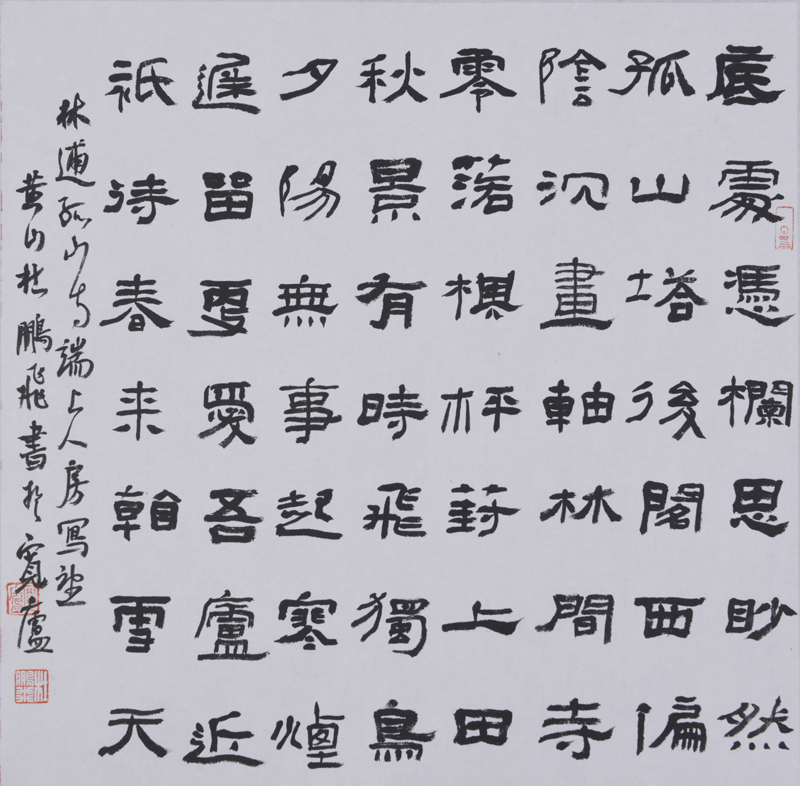 底處憑欄思眇然
孤山塔後閣西偏
陰沉畫軸林間寺
零落棋枰葑上田
秋景有時飛獨鳥
夕陽無事起寒煙
遲留更愛吾廬近
祇待春来看雪天
林逋孤山寺端上人房寫望
黄山杜鵬飛書於寬廬